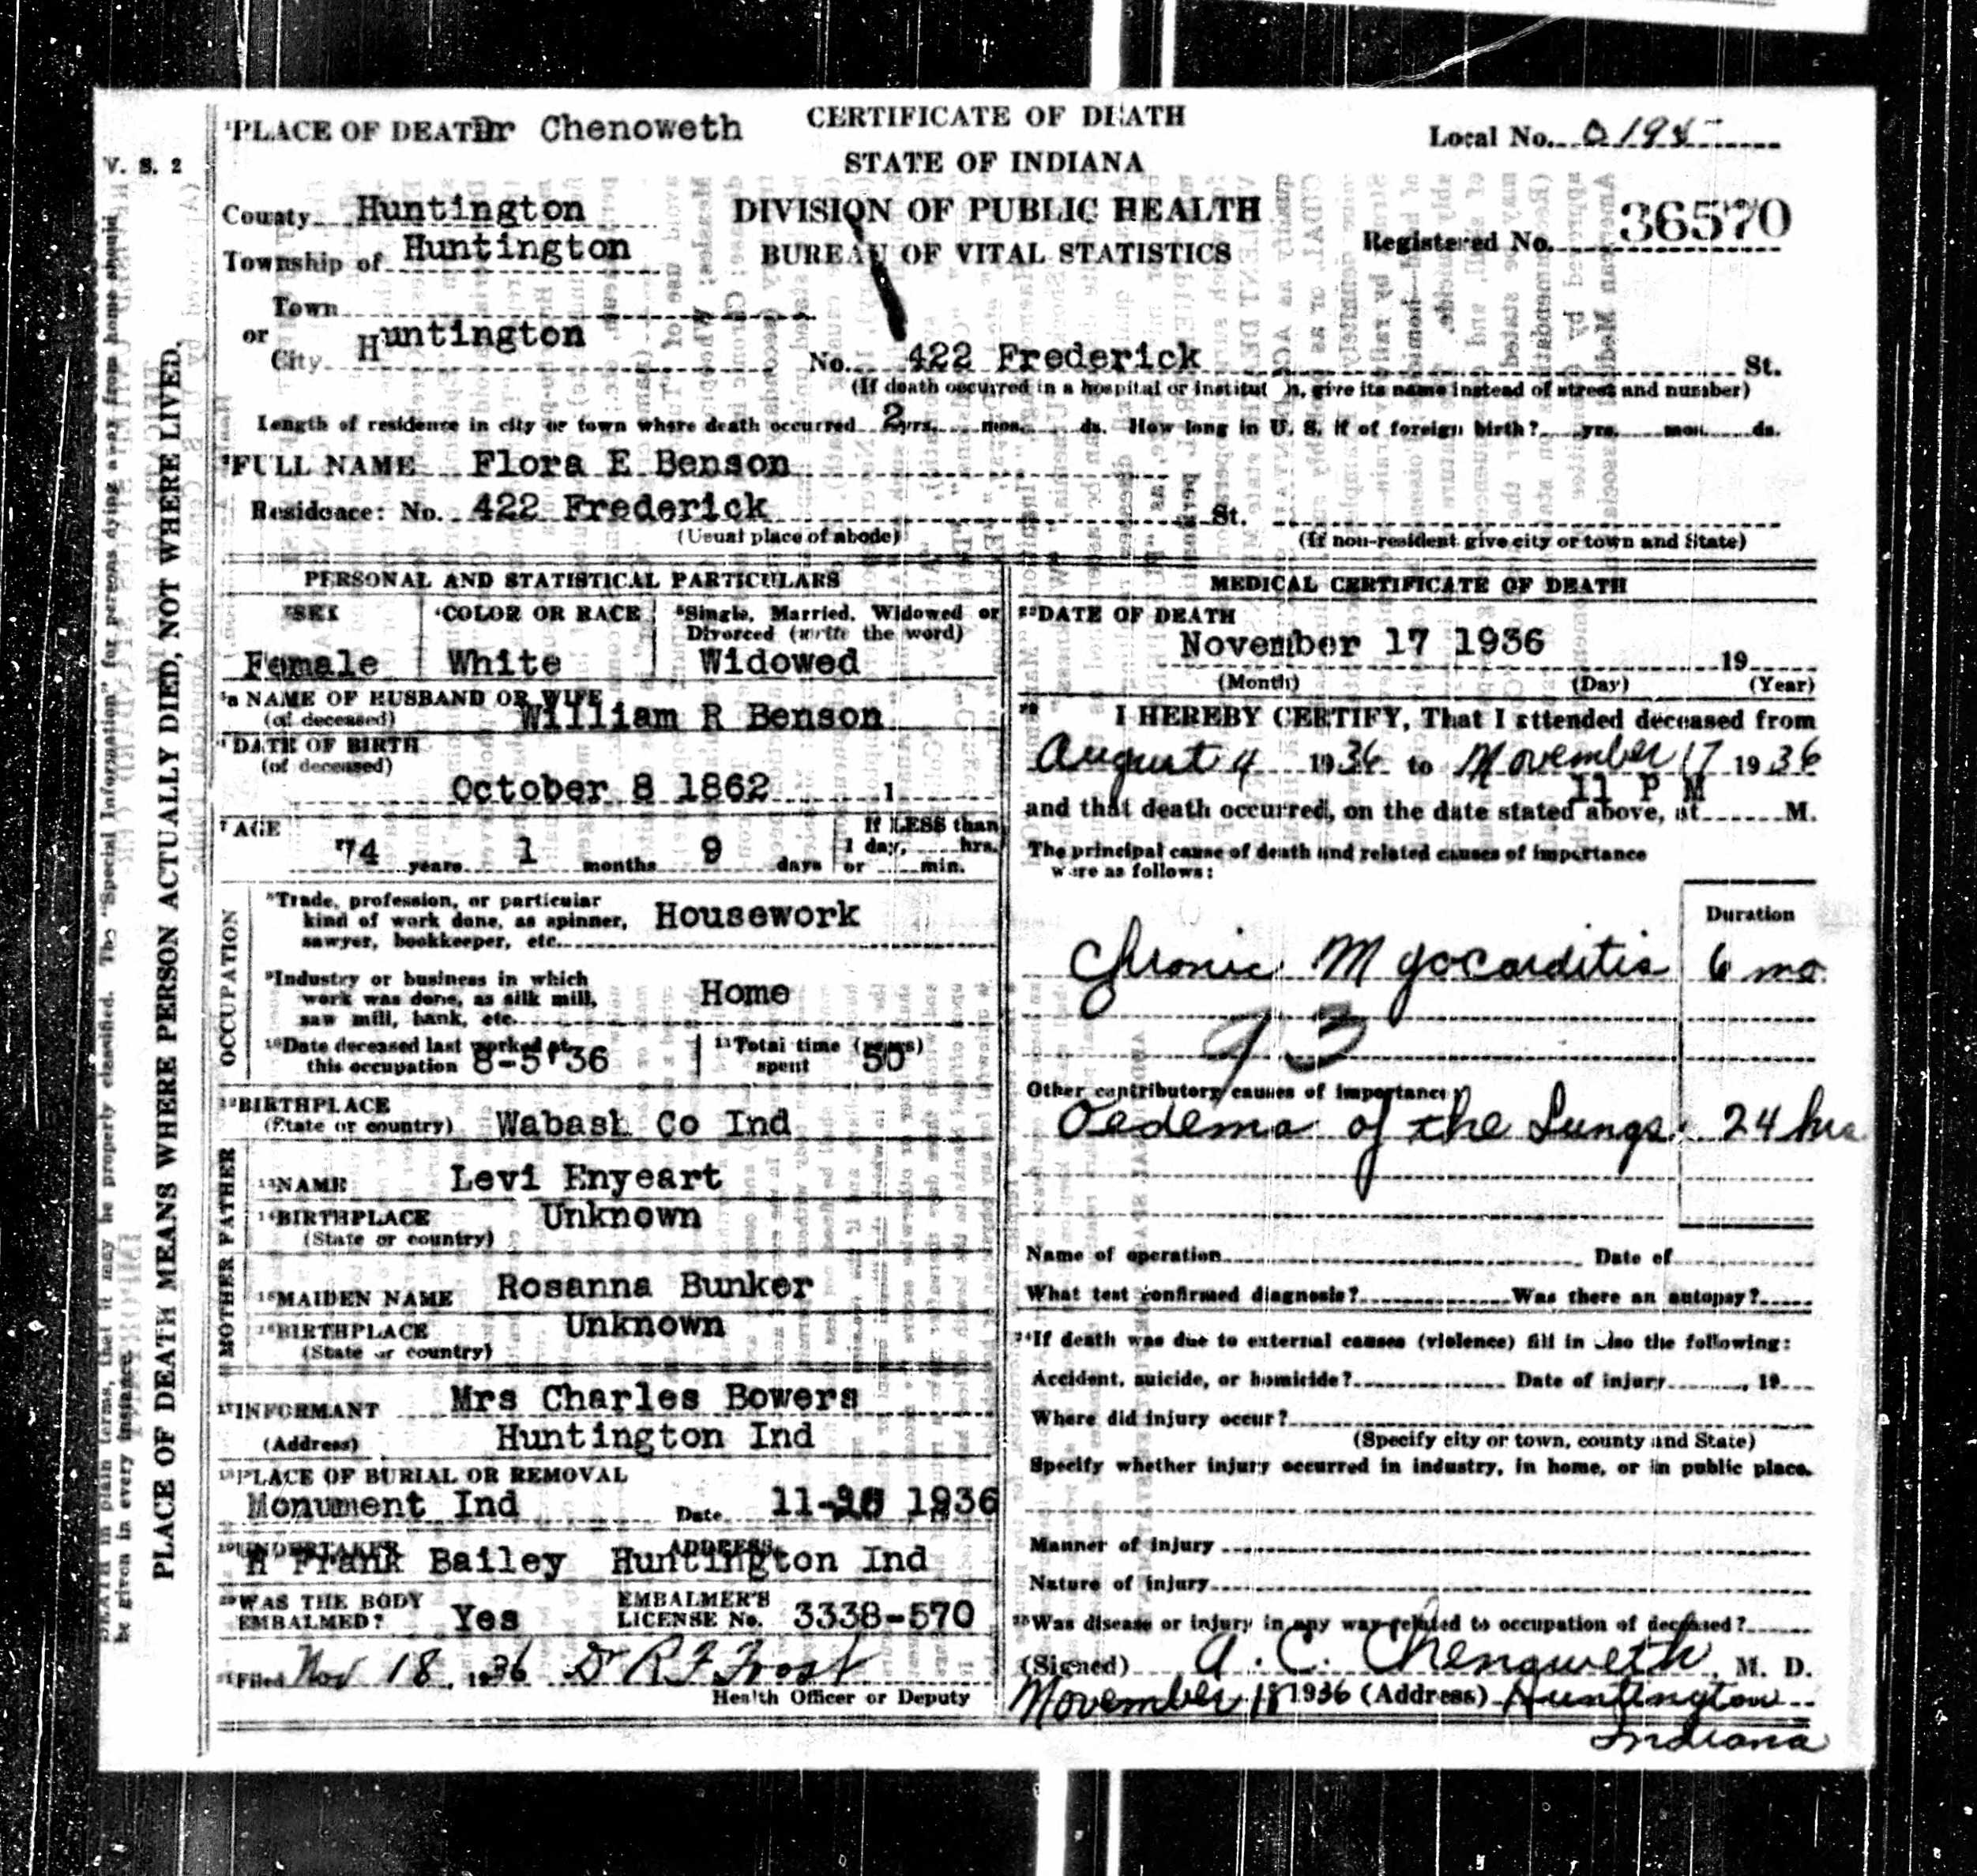 CERTIFICATE OF DEATH
STATE OF INDIANA
DIVISION OF PUBLIC HEALTH
BUREAU OF VITAL STATISTICS
V. S. 2
¹PLACE OF DEATH Dr Chenoweth
Local No.
Registered No. 36570
County Huntington
Township of Huntington
Town
or
City Huntington
No. 422 Frederick St.
(If death occurred in a hospital or institution, give its name instead of street and number)
Length of residence in city or town where death occurred 2 yrs. mos. ds. How long in U. S. if of foreign birth? yrs. mos. ds.
²FULL NAME Flora E Benson
Residence: No. 422 Frederick St.
(Usual place of abode) (If non-resident give city or town and State)
PERSONAL AND STATISTICAL PARTICULARS
³SEX ⁴COLOR OR RACE ⁵Single, Married, Widowed or
Divorced (write the word)
Female White Widowed
⁵a NAME OF HUSBAND OR WIFE
(of deceased) William R Benson
⁶DATE OF BIRTH
(of deceased)
October 8 1862 1
⁷AGE If LESS than
74 years 1 months 9 days 1 day, hrs.
or min.
OCCUPATION
⁸Trade, profession, or particular
kind of work done, as spinner, Housework
sawyer, bookkeeper, etc.
⁹Industry or business in which
work was done, as silk mill, Home
saw mill, bank, etc.
¹⁰Date deceased last worked at ¹¹Total time (years)
this occupation 8-5'36 spent 50
¹²BIRTHPLACE
(State or country) Wabash Co Ind
FATHER
¹³NAME Levi Enyeart
¹⁴BIRTHPLACE Unknown
(State or country)
MOTHER
¹⁵MAIDEN NAME Rosanna Bunker
¹⁶BIRTHPLACE Unknown
(State or country)
¹⁷INFORMANT Mrs Charles Bowers
(Address) Huntington Ind
¹⁸PLACE OF BURIAL OR REMOVAL
Monument Ind Date 11- 1936
¹⁹UNDERTAKER ADDRESS
H Frank Bailey Huntington Ind
²⁰WAS THE BODY EMBALMER'S
EMBALMED? Yes LICENSE No. 3338-570
²¹Filed Nov 18, 1936 Dr R F Frost
Health Officer or Deputy
MEDICAL CERTIFICATE OF DEATH
²²DATE OF DEATH
November 17 1936 19
(Month) (Day) (Year)
²³ I HEREBY CERTIFY, That I attended deceased from
August 4 1936 to November 17 1936
11 P M
and that death occurred, on the date stated above, at M.
The principal cause of death and related causes of importance
were as follows:
Duration
Chronic Myocarditis 6 mo.
93
Other contributory causes of importance:
Oedema of the Lungs. 24 hrs
Name of operation Date of
What test confirmed diagnosis? Was there an autopsy?
²⁴If death was due to external causes (violence) fill in also the following:
Accident, suicide, or homicide? Date of injury , 19
Where did injury occur?
(Specify city or town, county and State)
Specify whether injury occurred in industry, in home, or in public place.
Manner of injury
Nature of injury
²⁵Was disease or injury in any way related to occupation of deceased?
(Signed) A. C. Chenoweth, M. D.
November 18 1936 (Address) Huntington
Indiana
PLACE OF DEATH MEANS WHERE PERSON ACTUALLY DIED, NOT WHERE LIVED.
DEATH in plain terms, that it may be properly classified. The "Special Information" for persons dying away from home should
be given in every instance.